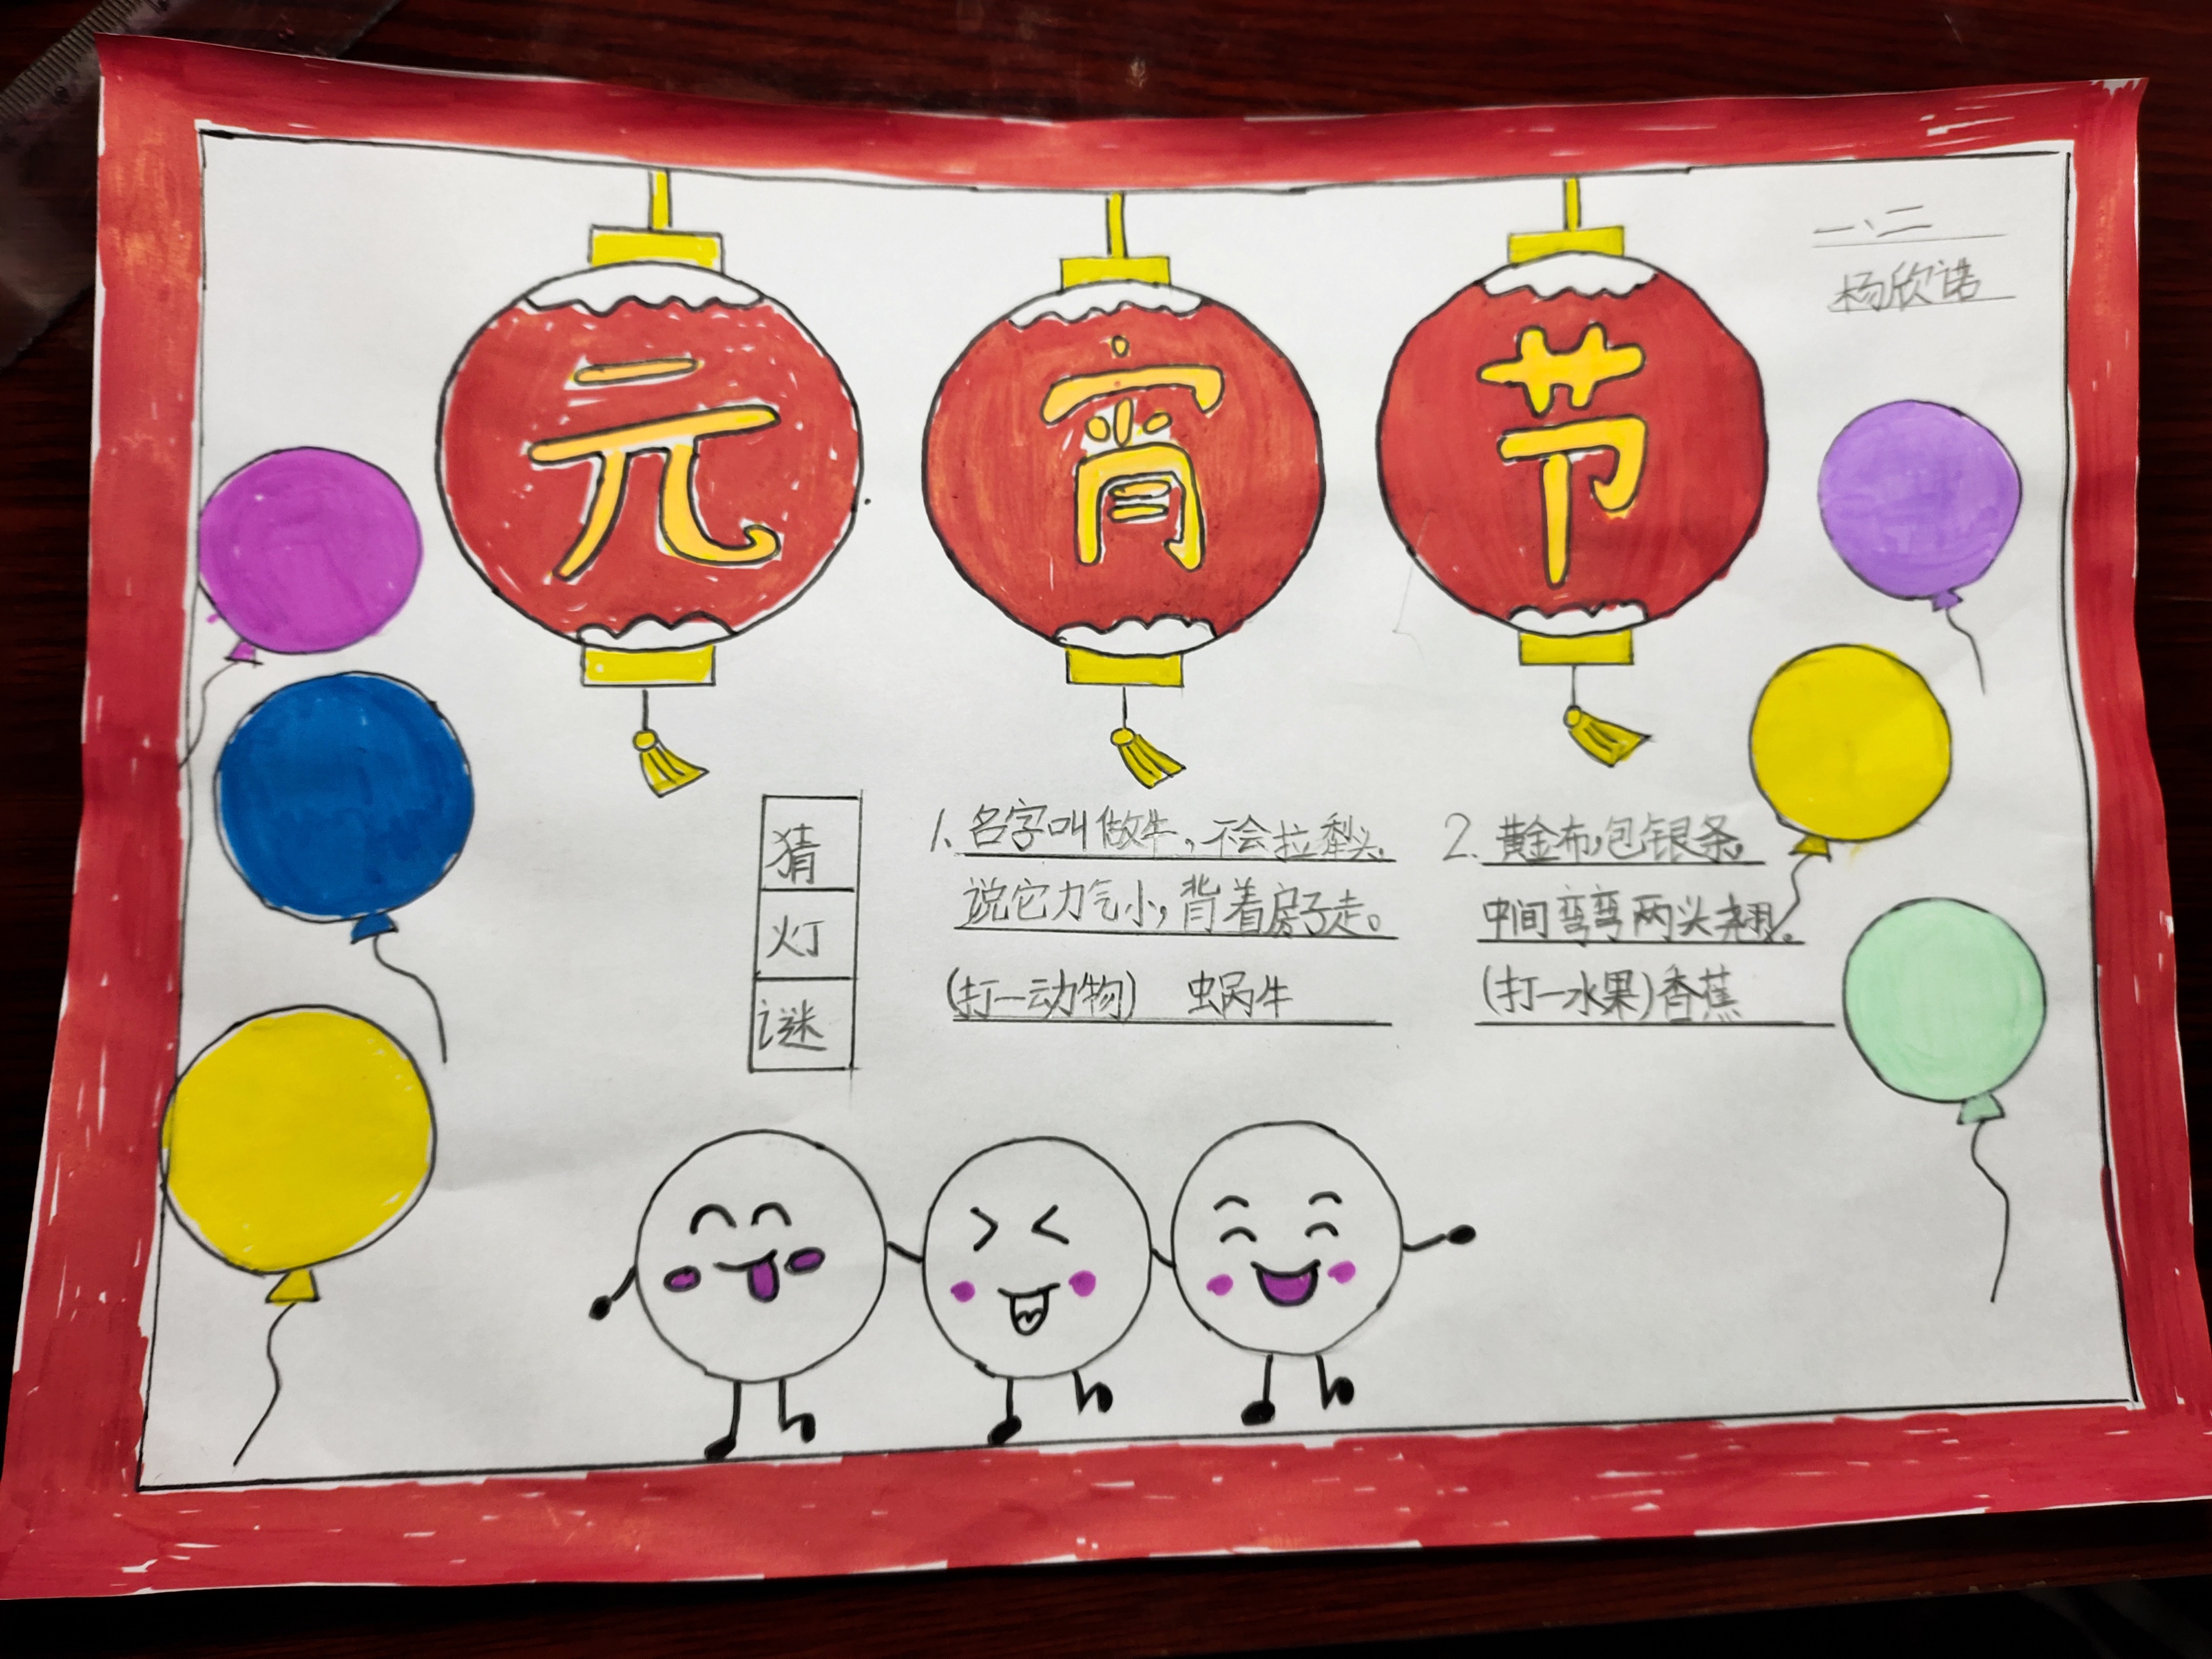 元宵节
一、二
杨欣诺
猜灯谜
1、名字叫做牛,不会拉犁头,
说它力气小,背着房子走。
(打一动物) 蜗牛
2、黄金布,包银条,
中间弯弯两头翘。
(打一水果)香蕉